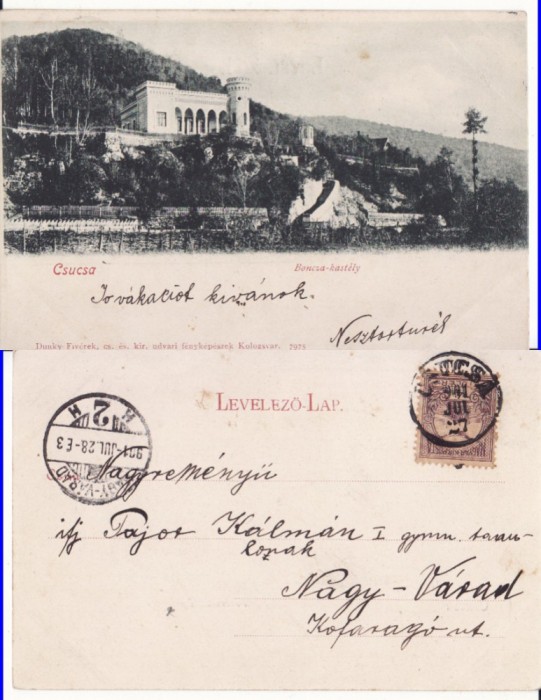 Csucsa
Boncza-kastély
Jó vákációt kivánok.
Dunky Fivérek, cs. és. kir. udvari fényképészek Kolozsvar. 7975
LEVELEZŐ-LAP.
CSUCSA
901
JUL
27
2
901 JUL. 28-E.3
Nagyreményű
ifj Pajor Kálmán I gymn.
lonak
Nagy-Várad
Kőfaragó ut.